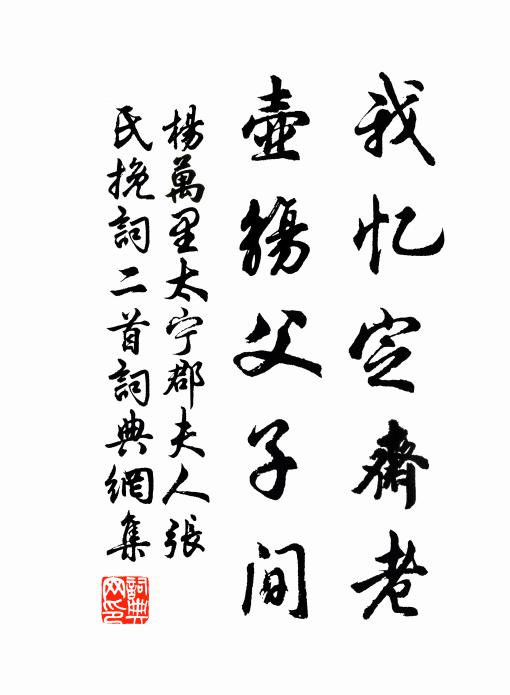 我忆定齋老
壺觴父子间
楊萬里太宁郡夫人張
氏挽詞二首詞典網集
詞典
网印